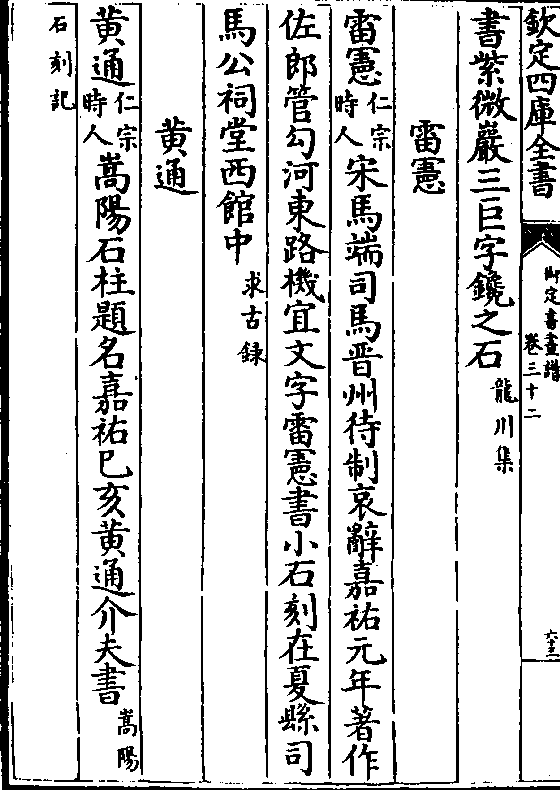 欽定四庫全書
御定書畫譜
卷三十二
六三
書紫微巖三巨字鑱之石龍川集
雷憲
雷憲仁宗時人宋馬端司馬晉州待制哀辭嘉祐元年著作
佐郎管勾河東路機宜文字雷憲書小石刻在夏縣司
馬公祠堂西館中求古録
黄通
黄通仁宗時人嵩陽石柱題名嘉祐巳亥黄通介夫書嵩陽
石刻記